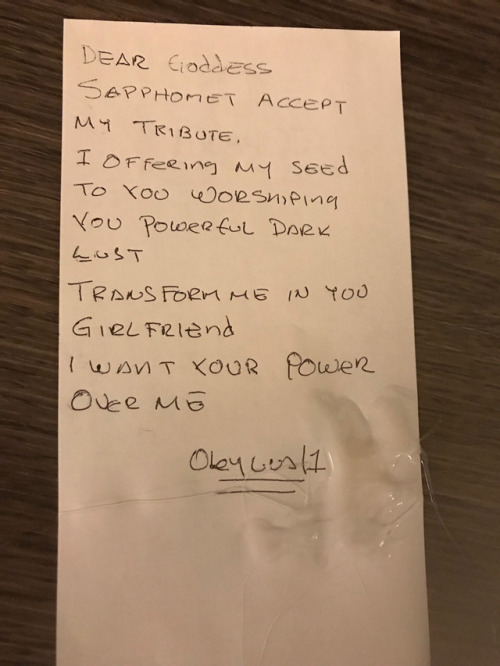 DEAR Goddess
SAPPHOMET ACCEPT
MY TRIBUTE,
I OFFERING MY SEEd
TO YOU WORSHIPING
YOU POWERFUL DARK
LUST
TRANSFORM ME IN YOU
GIRLFRIEnd
I WANT YOUR POWER
OVER ME